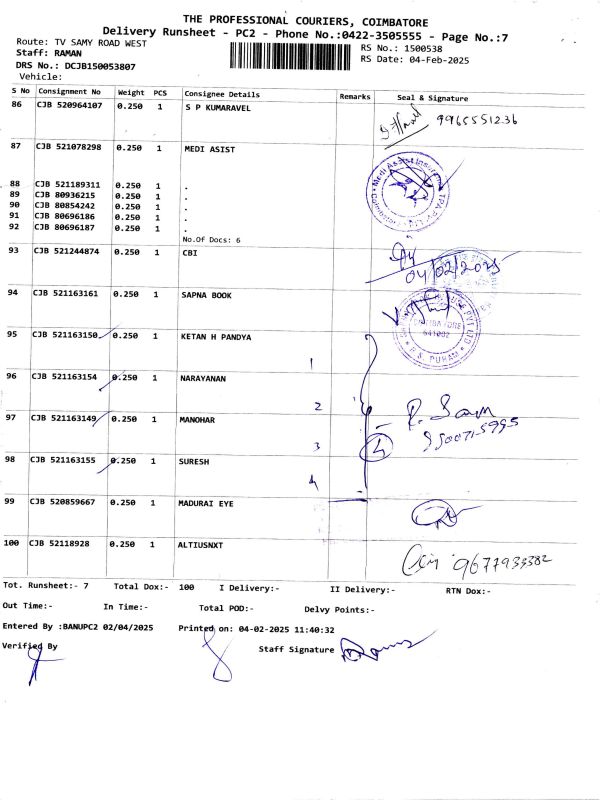 THE PROFESSIONAL COURIERS, COIMBATORE
Delivery Runsheet - PC2 - Phone No.:0422-3505555 - Page No.:7
Route: TV SAMY ROAD WEST
RS No.: 1500538
Staff: RAMAN
RS Date: 04-Feb-2025
DRS No.: DCJB150053807
Vehicle:
S No Consignment No Weight PCS Consignee Details Remarks Seal & Signature
86 CJB 520964107 0.250 1 S P KUMARAVEL 9965551236
87 CJB 521078298 0.250 1 MEDI ASIST
88 CJB 521189311 0.250 1 .
89 CJB 80936215 0.250 1 .
90 CJB 80854242 0.250 1 .
91 CJB 80696186 0.250 1 .
92 CJB 80696187 0.250 1 .
No.Of Docs: 6
93 CJB 521244874 0.250 1 CBI 04/02/2025
94 CJB 521163161 0.250 1 SAPNA BOOK
641002
95 CJB 521163150 0.250 1 KETAN H PANDYA
1
96 CJB 521163154 0.250 1 NARAYANAN
2
97 CJB 521163149 0.250 1 MANOHAR
3 4
98 CJB 521163155 0.250 1 SURESH
4
99 CJB 520859667 0.250 1 MADURAI EYE
100 CJB 52118928 0.250 1 ALTIUSNXT 9677933382
Tot. Runsheet:- 7 Total Dox:- 100 I Delivery:- II Delivery:- RTN Dox:-
Out Time:- In Time:- Total POD:- Delvy Points:-
Entered By :BANUPC2 02/04/2025 Printed on: 04-02-2025 11:40:32
Verified By Staff Signature